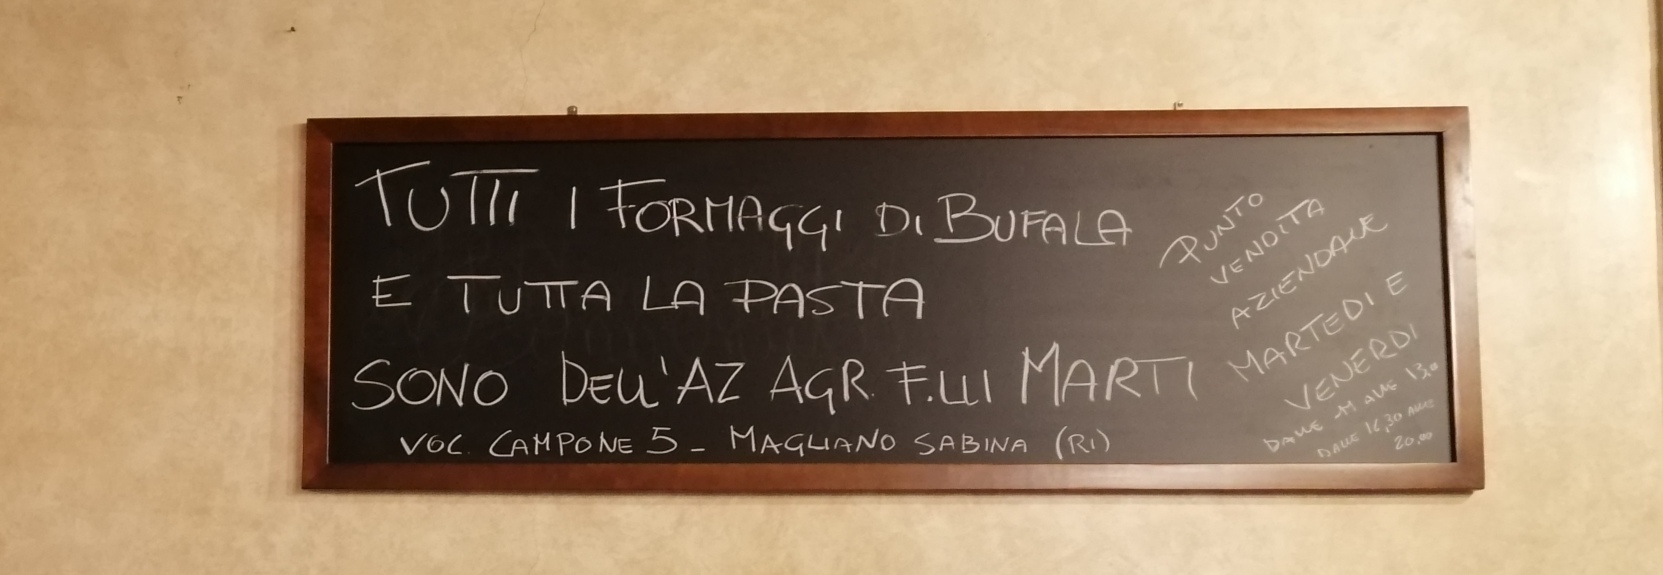 TUTTI I FORMAGGI DI BUFALA
E TUTTA LA PASTA
SONO DELL'AZ AGR. F.LLI MARTI
VOC. CAMPONE 5 - MAGLIANO SABINA (RI)
PUNTO
VENDITA
AZIENDALE
MARTEDI E
VENERDI
DALLE ALLE
DALLE ALLE
20,00